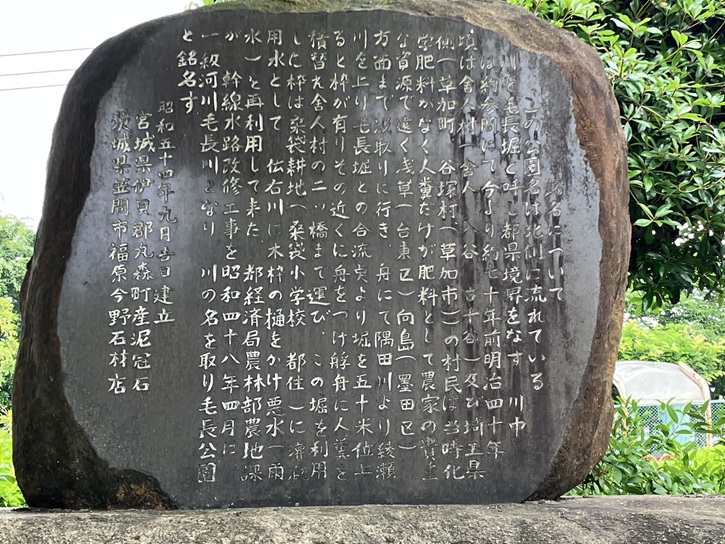 銘名について
この公園名は北側に流れている
川を毛長堀と呼し都県境界をなす 川巾
は約参間にて今より約七十年前明治四十年
頃は舎人村(舎人 入谷 古千谷)及び埼玉県
側(草加町 谷塚村(草加市))の村民は当時化
学肥料がなく人糞だけが肥料として農家の貴重
な資源で遠く浅草(台東区)向島(墨田区)
方面まで汲取りに行き 舟にて隅田川より綾瀬
川を上り毛長堀との合流点より堀を五十米位上
ると枠が有りその近くに舟をつけ艀舟に人糞を
積替え舎人村の二ツ橋まで運び、この堀を利用
した枠は桑袋耕地(桑袋小学校 都住)に潅漑
用水として 伝右川に木枠の樋をかけ悪水(雨
水)を再利用して来た 都経済局農林部農地課
が 幹線水路改修工事を昭和四十八年四月に
一級河川毛長川となり 川の名を取り毛長公園
と銘名す
昭和五十四年九月吉日建立
宮城県伊具郡丸森町産泥冠石
茨城県笠間市福原今野石材店